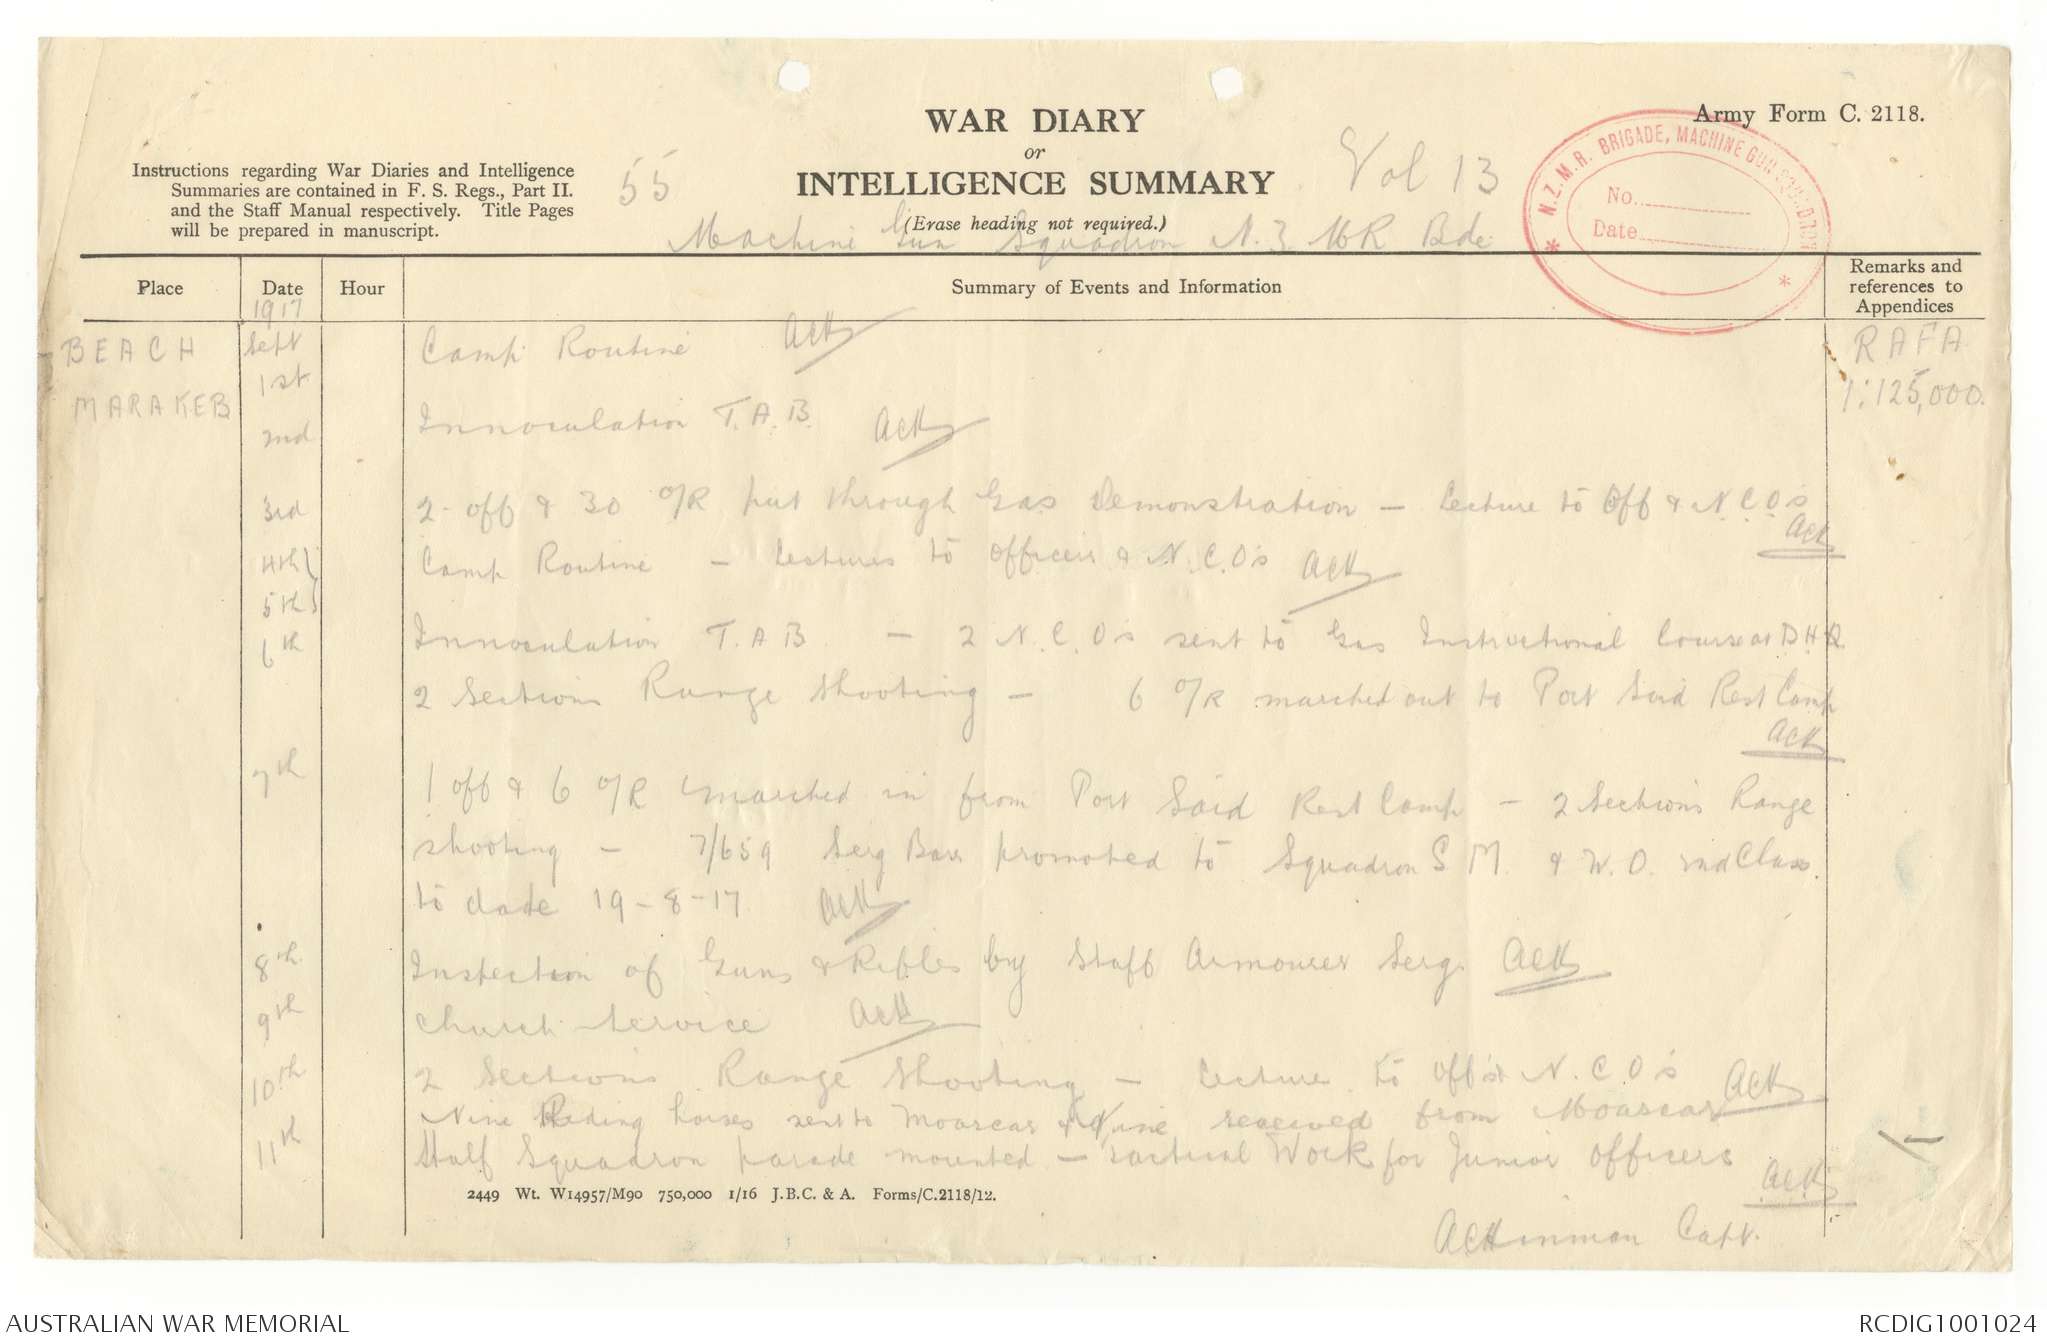 WAR DIARY
or
INTELLIGENCE SUMMARY
(Erase heading not required.)
Army Form C. 2118.
Instructions regarding War Diaries and Intelligence
Summaries are contained in F. S. Regs., Part II.
and the Staff Manual respectively. Title Pages
will be prepared in manuscript.
55
Vol 13
Machine Gun Squadron N.Z MR Bde
N.Z.M.R. BRIGADE, MACHINE GUN SQUADRON
No.
Date
Place
Date
Hour
Summary of Events and Information
Remarks and
references to
Appendices
1917
BEACH
MARAKEB
RAFA
1:125,000.
Sept
1st
Camp Routine ACH
2nd
Innoculation T.A.B. ACH
3rd
2 off & 30 O/R put through Gas Demonstration – Lecture to Off & N.C.O's
ACH
4th
5th
Camp Routine – Lectures to Officers & N.C.O's ACH
6th
Innoculation T.A.B. – 2 N.C.O's sent to Gas Instructional Course at D.H.Q.
2 Sections Range Shooting – 6 O/R marched out to Port Said Rest Camp
ACH
7th
1 off & 6 O/R marched in from Port Said Rest Camp – 2 Sections Range
shooting – 7/659 Serg Barr promoted to Squadron S M. & W.O. 2nd Class.
to date 19-8-17 ACH
8th
Inspection of Guns & Rifles by Staff Armourer Serg. ACH
9th
Church Service ACH
10th
2 Sections Range Shooting – Lecture to Off's & N.C.O's ACH
Nine Riding horses sent to Moascar & Nine received from Moascar
11th
Half Squadron parade mounted – Tactical Work for Junior Officers
ACH
2449 Wt. W14957/M90 750,000 1/16 J.B.C. & A. Forms/C.2118/12.
ACHinman Capt.
AUSTRALIAN WAR MEMORIAL
RCDIG1001024